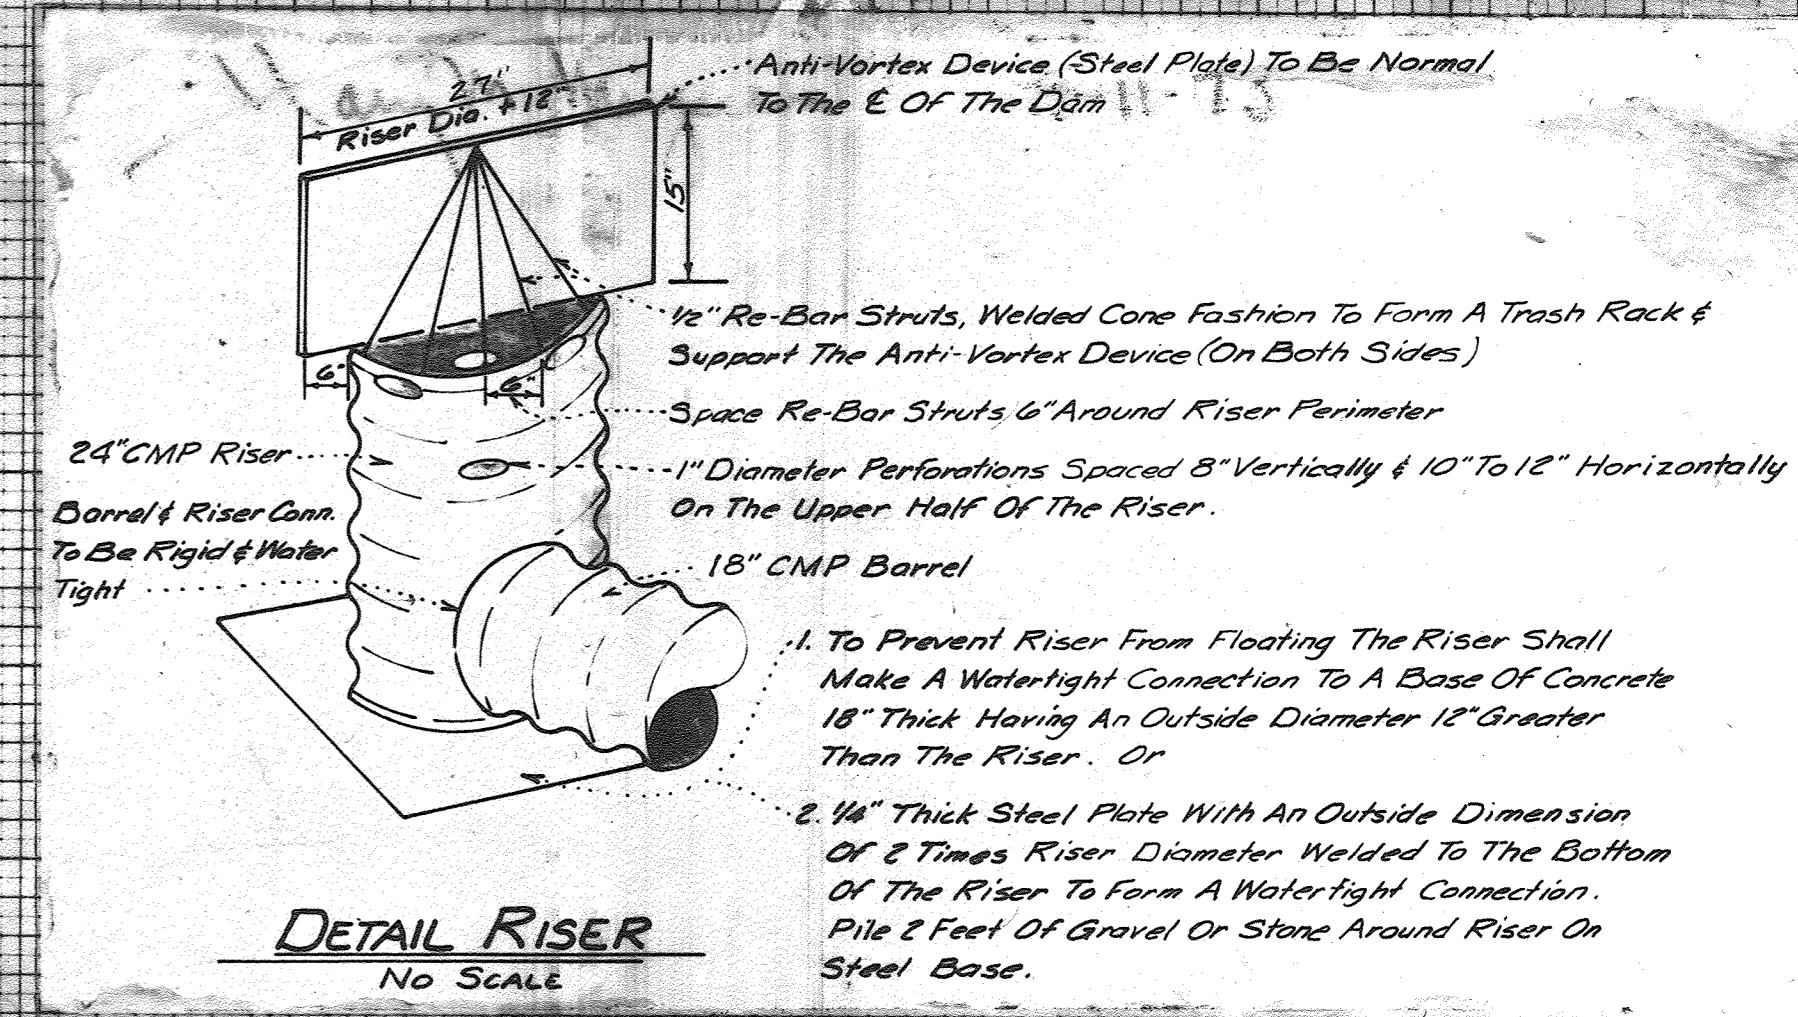 27"
Riser Dia. + 12"
Anti-Vortex Device (Steel Plate) To Be Normal
To The ℄ Of The Dam
15"
1/2" Re-Bar Struts, Welded Cone Fashion To Form A Trash Rack &
Support The Anti-Vortex Device (On Both Sides)
6"
6"
Space Re-Bar Struts 6" Around Riser Perimeter
24" CMP Riser
1" Diameter Perforations Spaced 8" Vertically & 10" To 12" Horizontally
On The Upper Half Of The Riser.
Barrel & Riser Conn.
To Be Rigid & Water
Tight
18" CMP Barrel
1. To Prevent Riser From Floating The Riser Shall
Make A Watertight Connection To A Base Of Concrete
18" Thick Having An Outside Diameter 12" Greater
Than The Riser. Or
2. 1/4" Thick Steel Plate With An Outside Dimension
Of 2 Times Riser Diameter Welded To The Bottom
Of The Riser To Form A Watertight Connection.
Pile 2 Feet Of Gravel Or Stone Around Riser On
Steel Base.
DETAIL RISER
NO SCALE